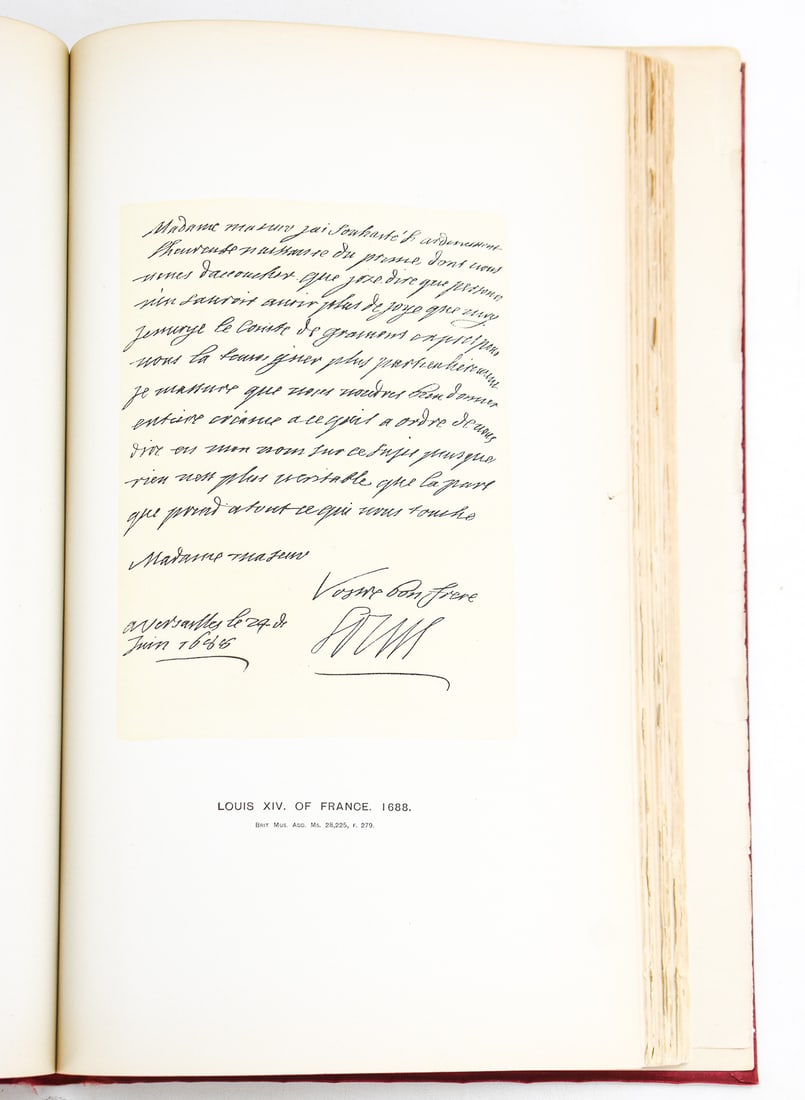 Madame ma seur jai souhaité si ardemment
lheureuse naissance du prince dont vous
venes daccoucher que jose dire que personne
nen sauroit avoir plus de joye que moy
jenvoye le Comte de gramont expres pour
vous la temoigner plus particulierement
je massure que vous voudres bien donner
entiere créance a ce quil a ordre de vous
dire en mon nom sur ce sujet puisque
rien nest plus veritable que la part
que prend a tout ce qui vous touche
Madame ma seur
Vostre bon frere
a Versailles le 24 de
Juin 1688
Louis
LOUIS XIV. OF FRANCE. 1688.
BRIT MUS. ADD. MS. 28,225, F. 279.